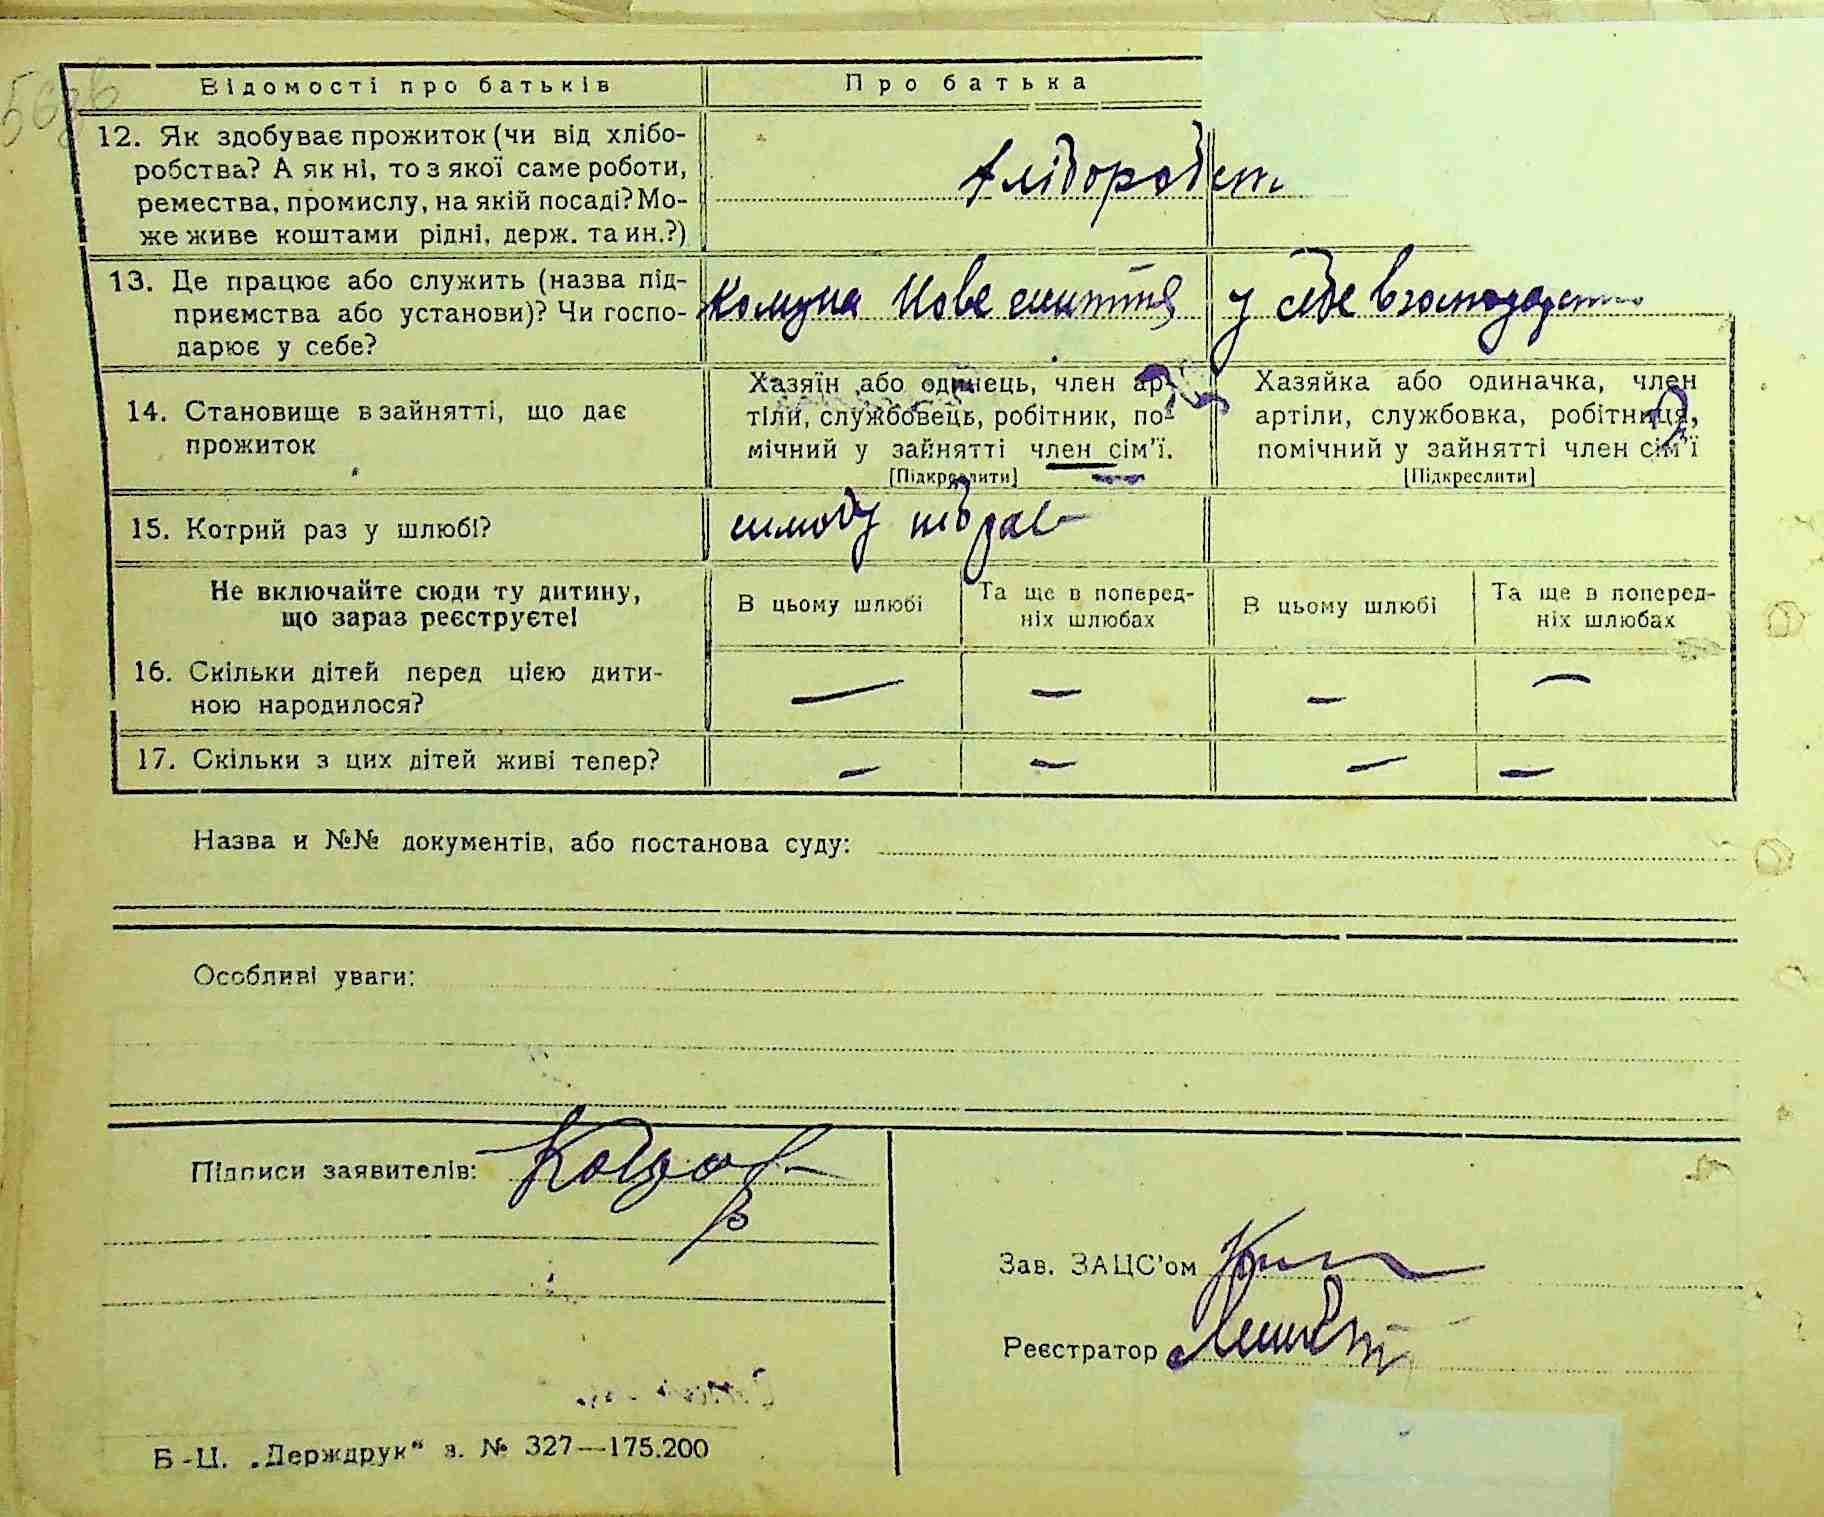 Відомості про батьків
Про батька
12. Як здобуває прожиток (чи від хлібо-
робства? А як ні, то з якої саме роботи,
ремества, промислу, на якій посаді? Мо-
же живе коштами рідні, держ. та ин.?)
хліборобст
13. Де працює або служить (назва під-
приємства або установи)? Чи госпо-
дарює у себе?
Комуна Нове життя
у себе в господарст
14. Становище в зайнятті, що дає
прожиток
Хазяїн або одинець, член ар-
тіли, службовець, робітник, по-
мічний у зайнятті член сім'ї.
[Підкреслити]
Хазяйка або одиначка, член
артіли, службовка, робітниця,
помічний у зайнятті член сім'ї
[Підкреслити]
15. Котрий раз у шлюбі?
Не включайте сюди ту дитину,
що зараз реєструєте!
В цьому шлюбі
Та ще в поперед-
ніх шлюбах
В цьому шлюбі
Та ще в поперед-
ніх шлюбах
16. Скільки дітей перед цією дити-
ною народилося?
— — — —
17. Скільки з цих дітей живі тепер?
— — — —
Назва и №№ документів, або постанова суду:
Особливі уваги:
Підписи заявителів:
Зав. ЗАЦС'ом
Реєстратор
Б-Ц. „Держдрук" з. № 327—175.200